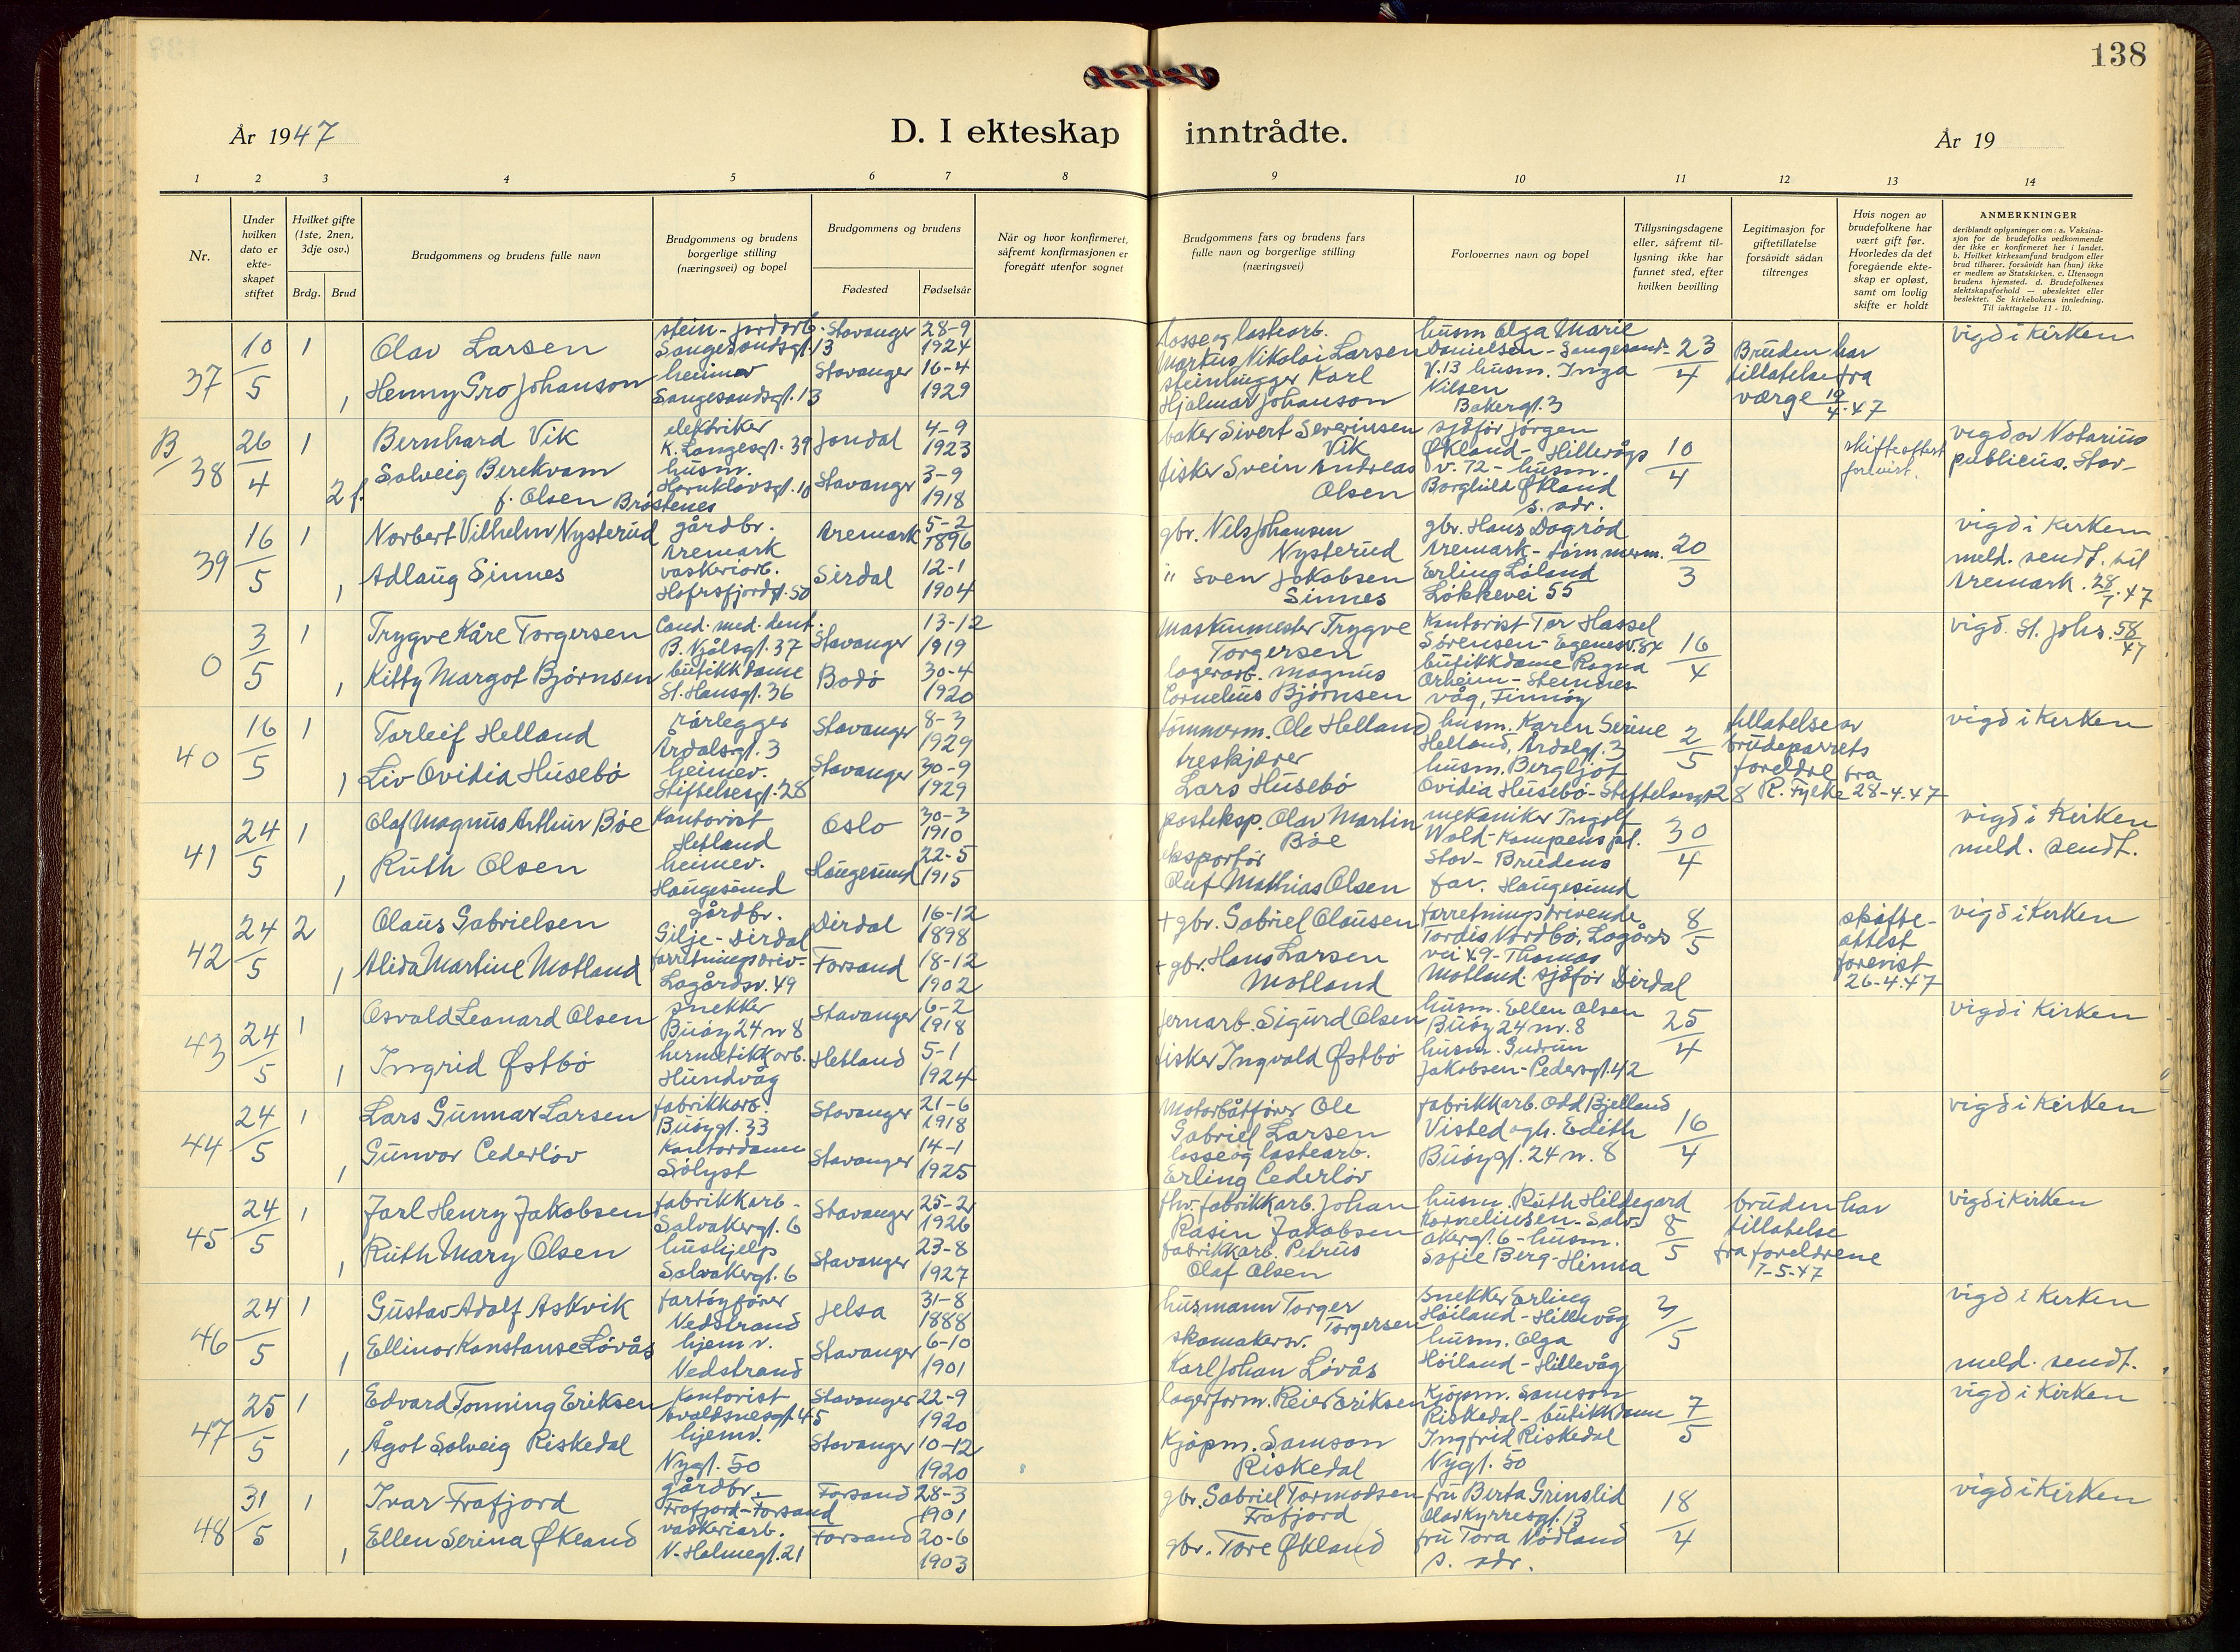 138
År 1947
D. I ekteskap inntrådte.
År 19
1 2 3 4 5 6 7 8 9 10 11 12 13 14
Nr.
Under hvilken dato er ekteskapet stiftet
Hvilket gifte (1ste, 2nen, 3dje osv.)
Brdg. Brud
Brudgommens og brudens fulle navn
Brudgommens og brudens borgerlige stilling (næringsvei) og bopel
Brudgommens og brudens
Fødested
Fødselsår
Når og hvor konfirmeret, såfremt konfirmasjonen er foregått utenfor sognet
Brudgommens fars og brudens fars fulle navn og borgerlige stilling (næringsvei)
Forlovernes navn og bopel
Tillysningsdagene eller, såfremt tillysning ikke har funnet sted, efter hvilken bevilling
Legitimasjon for giftetillatelse forsåvidt sådan tiltrenges
Hvis nogen av brudefolkene har vært gift før. Hvorledes da det foregående ekteskap er opløst, samt om lovlig skifte er holdt
ANMERKNINGER
deriblandt oplysninger om: a. Vaksinasjon for de brudefolks vedkommende der ikke er konfirmeret her i landet. b. Hvilket kirkesamfund brudgom eller brud tilhører, forsåvidt han (hun) ikke er medlem av Statskirken. c. Utensogn brudens hjemsted. d. Brudefolkenes slektskapsforhold — ubeslektet eller beslektet. Se kirkebokens innledning. Til iakttagelse 11 - 10.
37 10/5 1 Olav Larsen stein-jordarb. Sangesandsgt. 13 Stavanger 28-9 1924
1 Henny Gro Johanson heimev Sangesandsgt. 13 Stavanger 16-4 1929
losse og lastearb. Martus Nikolai Larsen
steinhugger Karl Hjalmar Johanson
husm Olga Marie Danielsen - Sangesands- V. 13 husm. Inga Nilsen Bakergt. 3
23/4
Bruden har tillatelse fra værge 19/4-47
vigd i Kirken
B 38 26/4 1 Bernhard Vik elektriker K. Langesgt. 39 Jondal 4-9 1923
2 f. Solveig Berekvam f. Olsen Bröstenes husm. Haruklovsgt. 10 Stavanger 3-9 1918
baker Sivert Severinsen Vik
fisker Svein Andreas Olsen
sjåfør Jörgen Økland - Hillevågs v. 72 - husm. Borghild Økland s. adr.
10/4
skifteattest forevist.
vigd av Notarius publicus. Stav-
39 16/5 1 Norbert Vilhelm Nysterud gårdbr. Aremark Aremark 5-2 1896
1 Adlaug Sinnes vaskeriarb. Hafrsfjordgt. 50 Sirdal 12-1 1904
gbr. Nils Johansen Nysterud
" Sven Jakobsen Sinnes
gbr. Hans Dagröd Aremark - tømmerm. Erling Löland Lökkevei 55
20/3
vigd i Kirken meld. sendt. til Aremark. 28/7.47
0 3/5 1 Trygve Kåre Torgersen Cand. med. dent. B. Njålsgt. 37 Stavanger 13-12 1919
1 Kitty Margot Bjørnsen butikkdame St. Hansgt. 36 Bodö 30-4 1920
Maskinmester Trygve Torgersen
lagerarb. Magnus Cornelius Bjørnsen
Kontorist Tor Hassel Sørensen - Egenesv. 84 butikkdame Ragna Orheim - Steinnesvåg, Finnöy
16/4
vigd. St. Johs. 58/47
40 16/5 1 Torleif Helland rörlegger Årdalsgt. 3 Stavanger 8-3 1929
1 Liv Ovidia Husebö heimev. Stiftelsesgt. 28 Stavanger 30-9 1929
tömmerm. Ole Helland
treskjærer Lars Husebö
husm. Karen Serine Helland, Årdalgt. 3 husm. Bergljot Ovidia Husebö - Stiftelsesgt 28
2/5
tillatelse av brudeparrets foreldre fra R. Fylke 28-4-47
vigd i Kirken
41 24/5 1 Olaf Magnus Arthur Böe Kontorist Hetland Oslo 30-3 1910
1 Ruth Olsen heimev. Haugesund Haugesund 22-5 1915
posteksp. Olav Martin Böe
eksportör Oluf Mathias Olsen
mekaniker Ingolf Wold - Kampens pl. Stav - Brudens far. Haugesund
30/4
vigd i Kirken meld. sendt.
42 24/5 2 Olaus Gabrielsen gårdbr. Gilje - Dirdal Dirdal 16-12 1898
1 Alida Martine Motland forretningsdriv- Lagårdsv. 49 Forsand 18-12 1902
+ gbr. Gabriel Olausen
+ gbr. Hans Larsen Motland
forretningsdrivende Tordis Nordbö, Lagårdsvei 49 - Thomas Motland. sjåför Dirdal
8/5
skifteattest forevist 26-4-47
vigd i Kirken
43 24/5 1 Osvald Leonard Olsen snekker Buöy 24 n 8 Stavanger 6-2 1918
1 Ingrid Østbö hermetikkarb. Hundvåg Hetland 5-1 1924
jernarb. Sigurd Olsen
fisker Ingvald Østbö
husm. Ellen Olsen Buöy 24 n. 8 husm. Gudrun Jakobsen - Pedersgt. 42
25/4
vigd i Kirken
44 24/5 1 Lars Gunnar Larsen fabrikkarb. Buöygt. 33 Stavanger 21-6 1918
1 Gunvor Cederlöv Kontordame Sölyst Stavanger 14-1 1925
Motorbåtförer Ole Gabriel Larsen
losse og lastearb. Erling Cederlöv
fabrikkarb. Odd Bjelland Visted ogh. Edith Buöygt. 24 n. 8
16/4
vigd i Kirken
45 24/5 1 Jarl Henry Jakobsen fabrikkarb- Solvakergt. 6 Stavanger 25-2 1926
1 Ruth Mary Olsen hushjelp Solvakergt. 6 Stavanger 23-8 1927
fhv. fabrikkarb. Johan Rasin Jakobsen
fabrikkarb. Petrus Olaf Olsen
husm. Ruth Hildegard Korneliusen - Solvakergt. 6 - husm. Sofie Berg - Hinna
8/5
bruden har tillatelse fra foreldrene 1-5-47
vigd i Kirken
46 24/5 1 Gustav Adolf Askvik fartöyförer Vedstrand Jelsa 31-8 1888
1 Ellinor Konstanse Lövås hjemv. Vedstrand Stavanger 6-10 1901
husmann Torger Torgersen
skomakersv. Karl Johan Lövås
snekker Erling Höiland - Hillevåg husm. Olga Höiland - Hillevåg
3/5
vigd i Kirken
meld. sendt.
47 25/5 1 Edvard Tonning Eriksen Kontorist Avaldsnesgt 45 Stavanger 22-9 1920
1 Ågot Solveig Riskedal hjemv. Nygt. 50 Stavanger 10-12 1920
lagerform. Reier Eriksen
Kjöpm. Samson Riskedal
Kjöpm. Samson Riskedal - butikkdame Ingfrid Riskedal Nygt. 50
7/5
vigd i Kirken
48 31/5 1 Ivar Frafjord gårdbr. Frafjord - Forsand Forsand 28-3 1901
1 Ellen Serina Økland vaskeriarb. N. Holmegt. 21 Forsand 20-6 1903
gbr. Gabriel Tormodsen Frafjord
gbr. Tore Økland
fru Berta Grinslid Olav Kyrresgt. 13 fru Tora Nödland s. adr.
18/4
vigd i Kirken